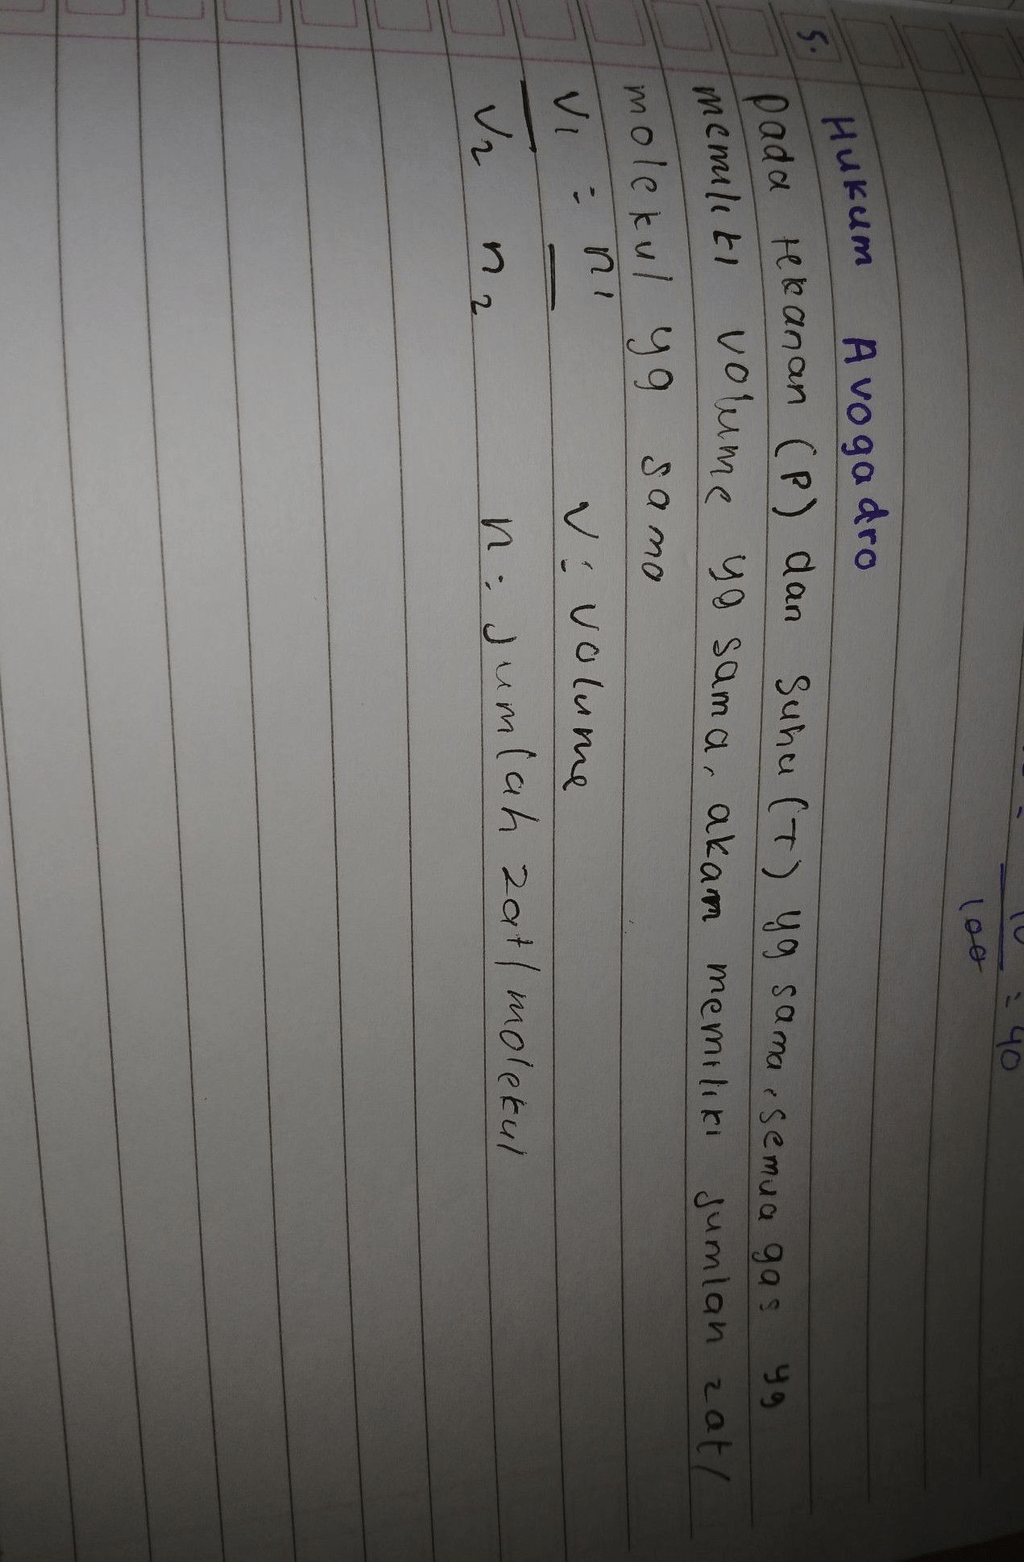 10
— = 40
100
5. Hukum Avogadro
Pada tekanan (P) dan suhu (T) yg sama, semua gas yg
memiliki volume yg sama, akan memiliki jumlah zat/
molekul yg sama
V1 = n1 V = volume
— —
V2 n2 n = jumlah zat/molekul